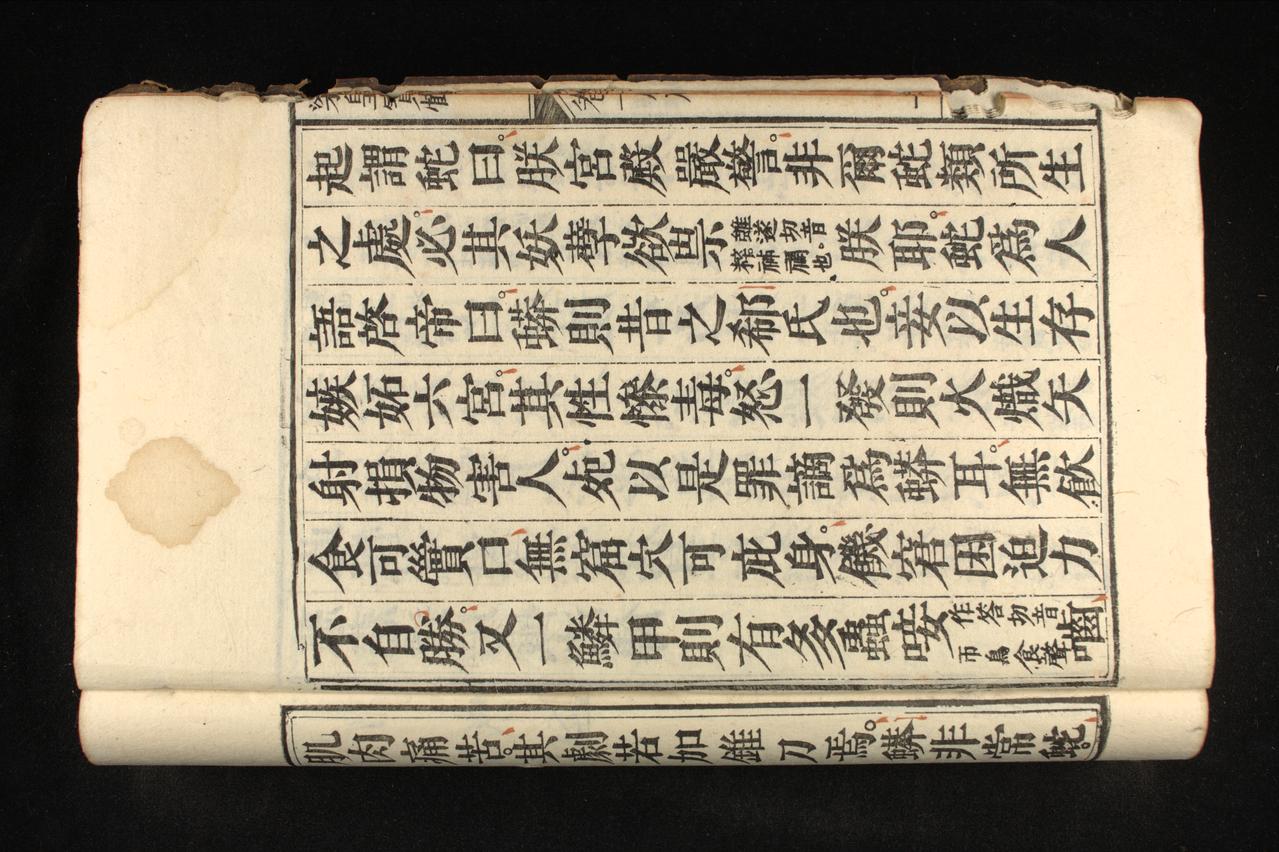 起謂蛇曰朕宮殿嚴警非爾蛇類所生
之處必其妖孽欲祟雖遂切音粹神禍也朕耶蛇爲人
語啓帝曰蟒則昔之郗氏也妾以生存
嫉妬六宮其性慘毒怒一發則火熾矢
射損物害人死以是罪謫爲蟒耳無飲
食可實口無窟穴可庇身饑窘困迫力
不自勝又一鱗甲則有多蟲唼作答切音帀鳥食聲嚙
肌肉痛苦其劇若加錐刀焉蟒非常蛇